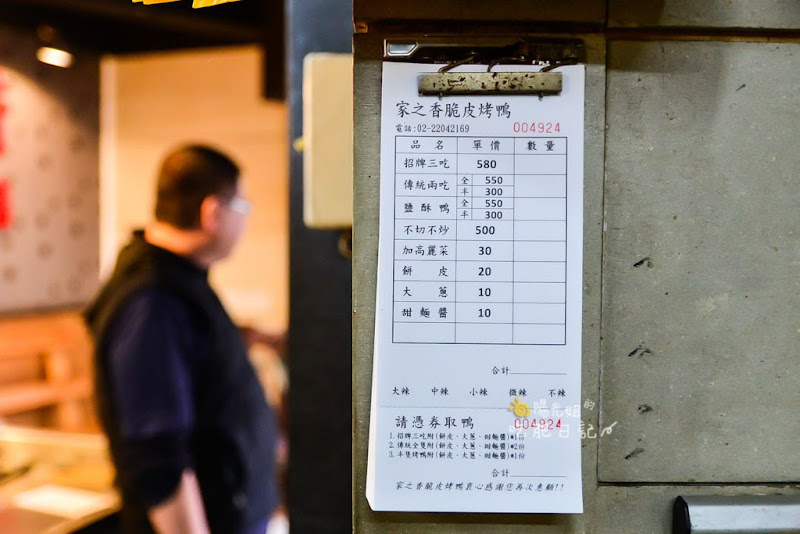 家之香脆皮烤鴨
電話:02-22042169 004924
品名 單價 數量
招牌三吃 580
傳統兩吃 全 550
半 300
鹽酥鴨 全 550
半 300
不切不炒 500
加高麗菜 30
餅皮 20
大蔥 10
甜麵醬 10
合計
大辣 中辣 小辣 微辣 不辣
請憑券取鴨 004924
1.招牌三吃附(餅皮、大蔥、甜麵醬)*1份
2.傳統全隻附(餅皮、大蔥、甜麵醬)*2份
3.半隻烤鴨附(餅皮、大蔥、甜麵醬)*1份
合計
家之香脆皮烤鴨衷心感謝您再次惠顧!!
陽光姐的
日記